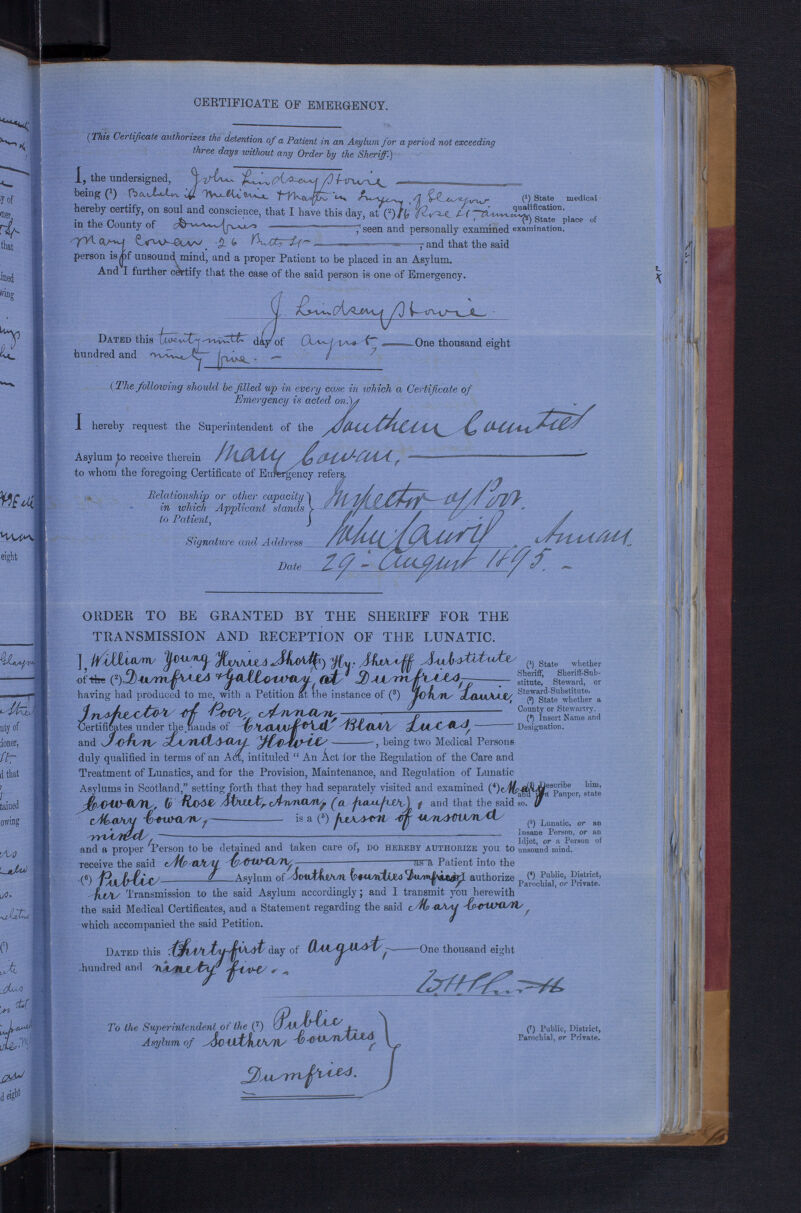 CERTIFICATE OF EMERGENCY.
(This Certificate authorizes the detention of a Patient in an Asylum for a period not exceeding
three days without any Order by the Sheriff.)
I, the undersigned, John Lindsay Howie
being (1) Bachelor of Medicine & Master in Surgery of Glasgow
(1) State medical
qualification.
hereby certify, on soul and conscience, that I have this day, at (2) 6 Rose St. Annan
(2) State place of
examination.
in the County of Dumfries ; seen and personally examined
Mary Cowan, 26 St ; and that the said
person is of unsound mind, and a proper Patient to be placed in an Asylum.
And I further certify that the case of the said person is one of Emergency.
J Lindsay Howie
DATED this twenty ninth day of August, One thousand eight
hundred and ninety five. —
(The following should be filled up in every case in which a Certificate of
Emergency is acted on.)
I hereby request the Superintendent of the Southern Counties
Asylum to receive therein Mary Cowan,
to whom the foregoing Certificate of Emergency refers.
Relationship or other capacity
in which Applicant stands
to Patient,
Inspector of Poor.
Signature and Address John Laurie, Annan.
Date 29th August 1895. —
ORDER TO BE GRANTED BY THE SHERIFF FOR THE
TRANSMISSION AND RECEPTION OF THE LUNATIC.
I, William Young Herries Shortt, (1) Hy. Sheriff Substitute
(1) State whether
Sheriff, Sheriff-Sub-
stitute, Steward, or
Steward-Substitute.
of the (2) Dumfries & Galloway, at Dumfries,
(2) State whether a
County or Stewartry.
having had produced to me, with a Petition at the instance of (3) John Laurie,
(3) Insert Name and
Designation.
Inspector of Poor, Annan
Certificates under the hands of Crawford Blair Lucas,
and John Lindsay Howie , being two Medical Persons
duly qualified in terms of an Act, intituled "An Act for the Regulation of the Care and
Treatment of Lunatics, and for the Provision, Maintenance, and Regulation of Lunatic
Asylums in Scotland," setting forth that they had separately visited and examined (4) Mary
(4) Describe him,
and if a Pauper, state
so.
Cowan, 6 Rose Street, Annan, (a pauper), and that the said
Mary Cowan, is a (5) person of unsound
(5) Lunatic, or an
Insane Person, or an
Idiot, or a Person of
unsound mind.
mind,
and a proper Person to be detained and taken care of, DO HEREBY AUTHORIZE YOU to
receive the said Mary Cowan, as a Patient into the
(6) Public Asylum of Southern Counties Dumfries; I authorize
(6) Public, District,
Parochial, or Private.
her Transmission to the said Asylum accordingly; and I transmit you herewith
the said Medical Certificates, and a Statement regarding the said Mary Cowan,
which accompanied the said Petition.
DATED this thirty first day of August, One thousand eight
hundred and ninety five. —
W.H. Shortt
To the Superintendent of the (7) Public
Asylum of Southern Counties
Dumfries.
(7) Public, District,
Parochial, or Private.